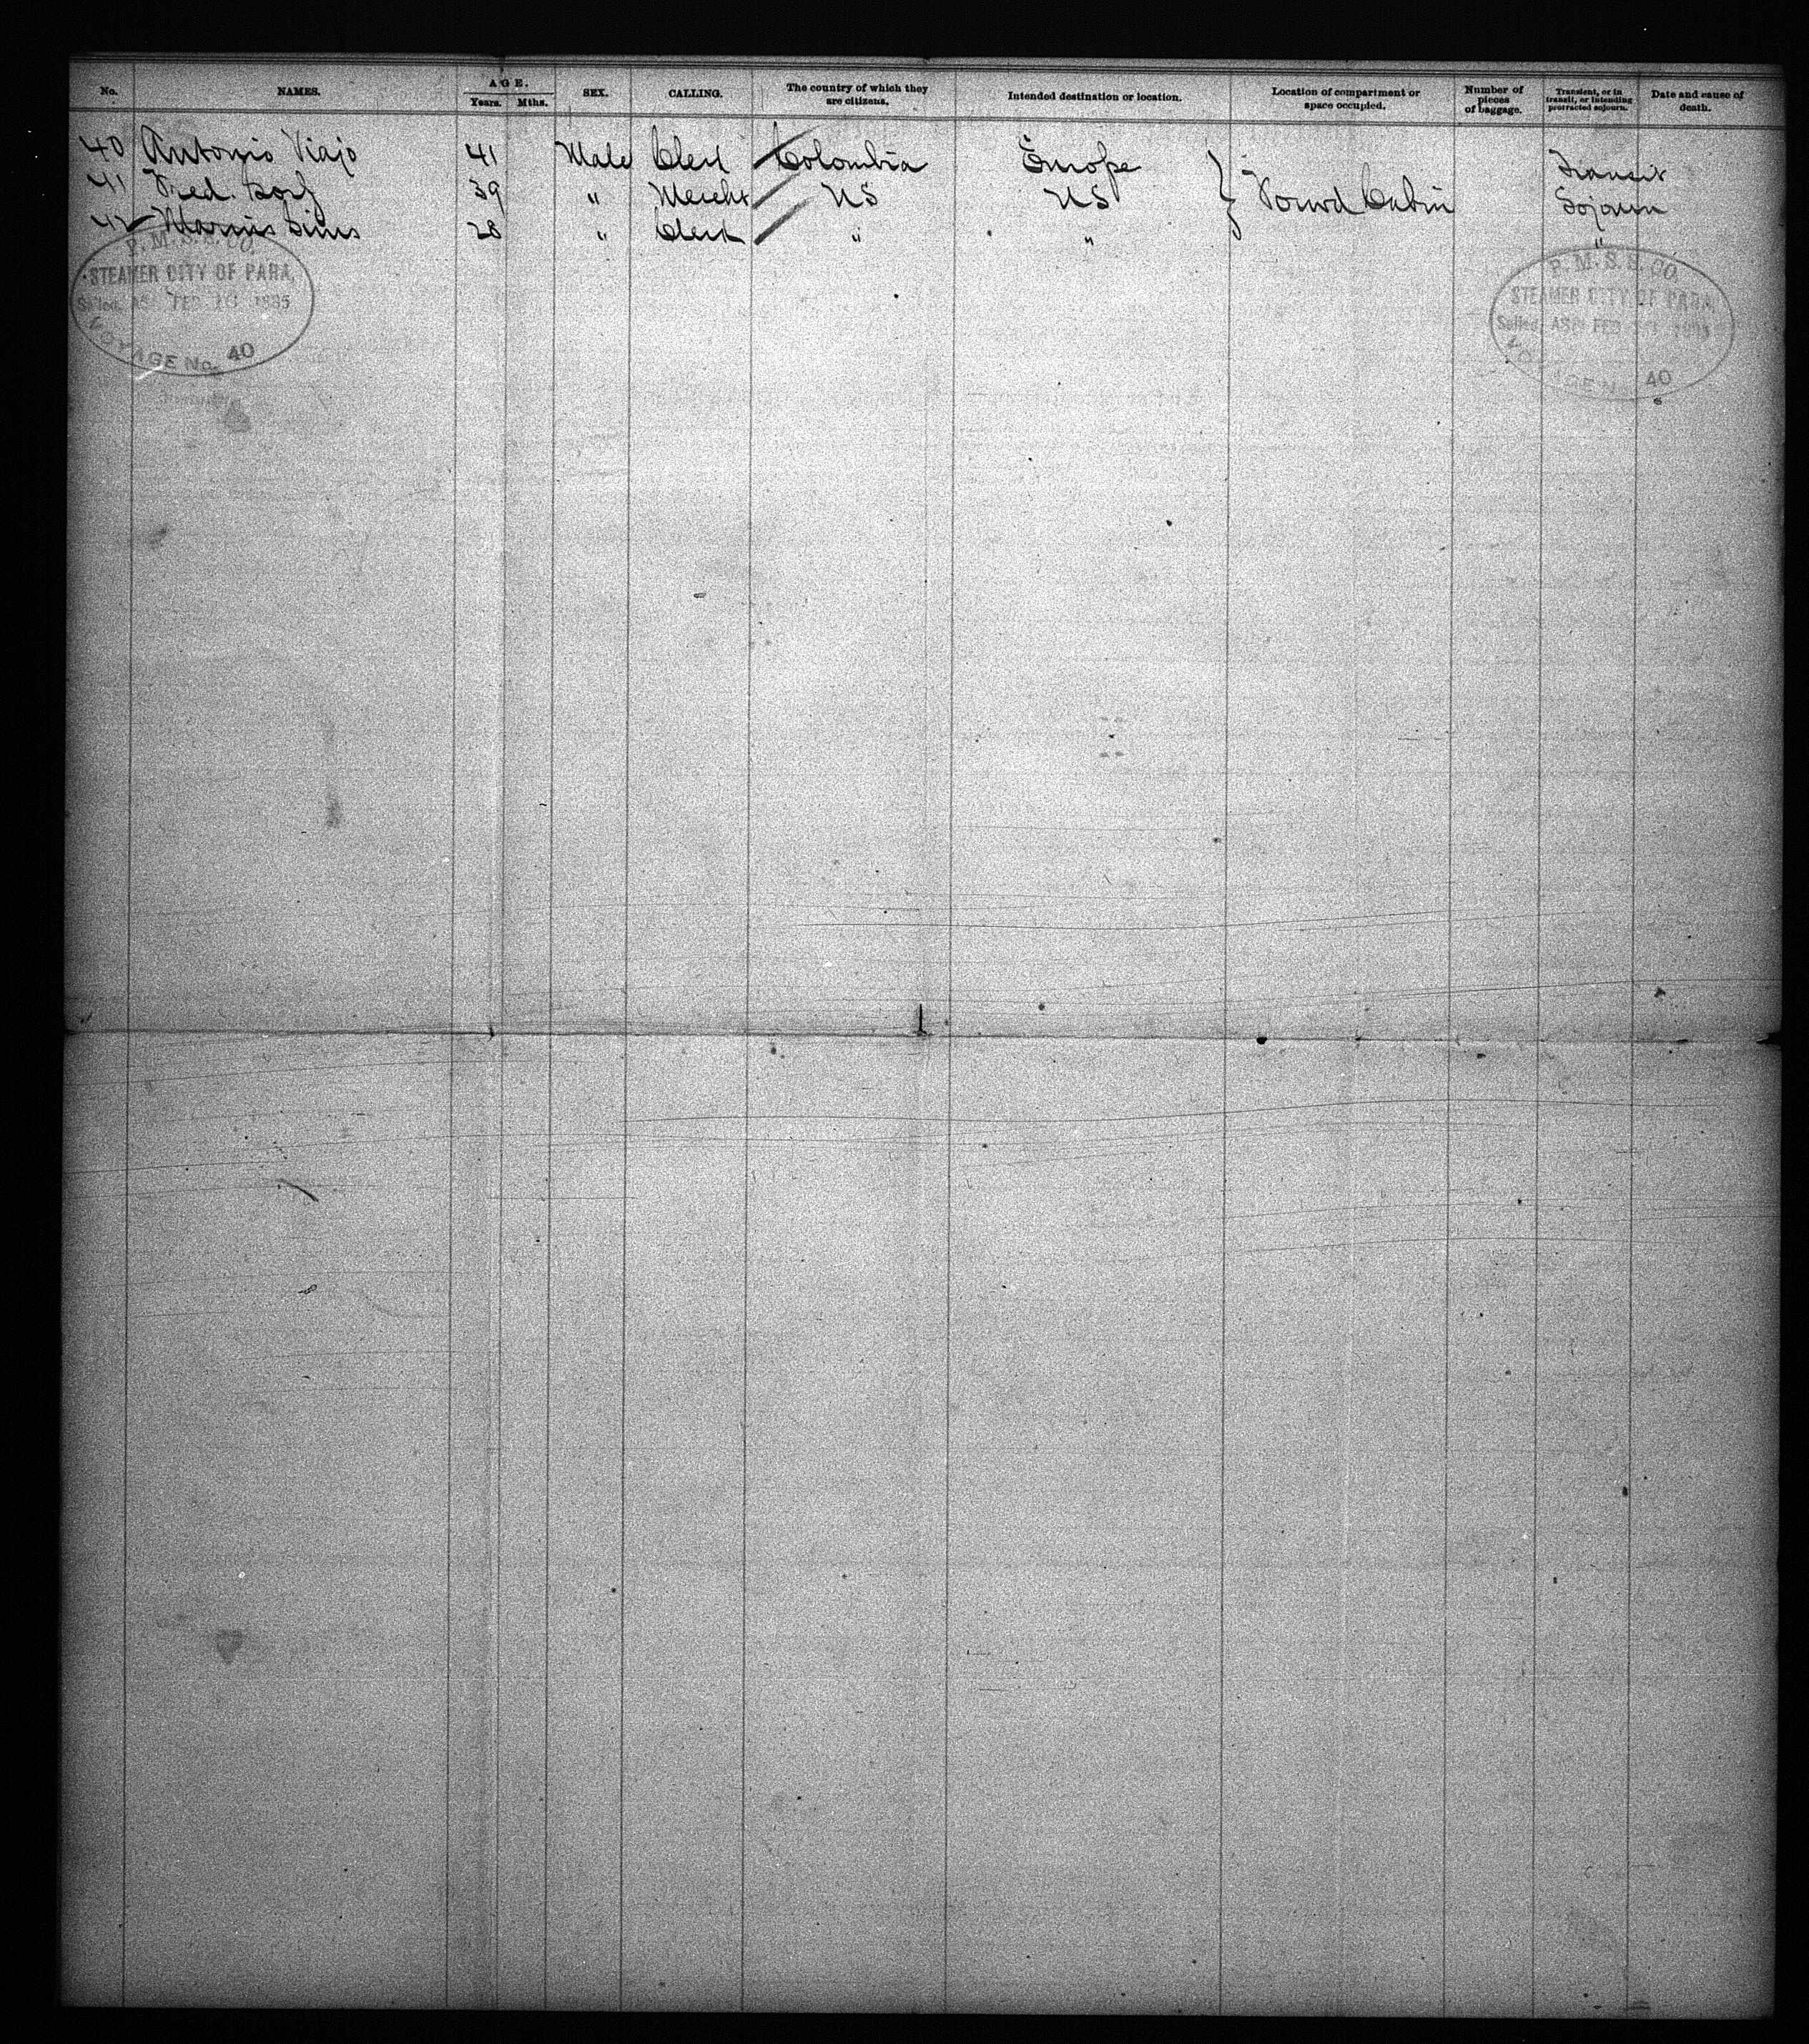 No. NAMES. AGE. Years. Mths. SEX. CALLING. The country of which they are citizens. Intended destination or location. Location of compartment or space occupied. Number of pieces of baggage. Transient, or in transit, or intending protracted sojourn. Date and cause of death.
40 Antonio Viajo 41 Male Clerk Colombia Europe Transit
41 Fred. 39 " Mercht US US Forwd Cabin Sojourn
42 28 " Clerk " " "
P. M. S. S. CO.
STEAMER CITY OF PARA,
Sailed, ASP FEB 1895
VOYAGE No. 40
P. M. S. S. CO.
STEAMER CITY OF PARA,
Sailed, ASP FEB
VOYAGE No. 40